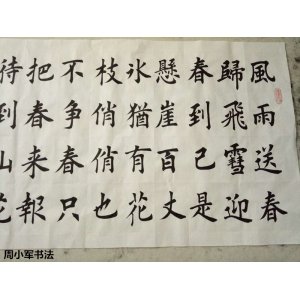 風雨送春
歸飛雪迎
春到己是
懸崖百丈
氷猶有花
枝俏俏也
不争春只
把春来報
待到山花
周小军书法